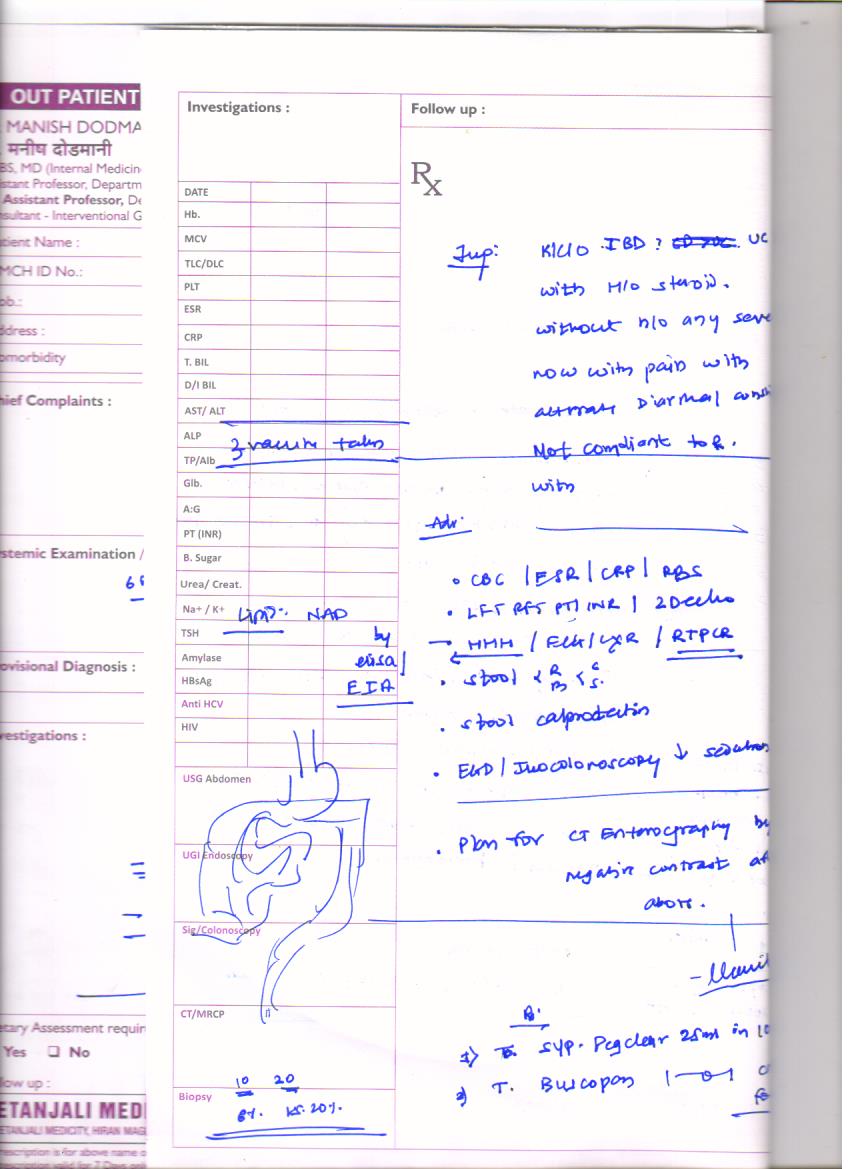 OUT PATIENT
MANISH DODMA
मनीष दोडमानी
BS, MD (Internal Medicin
istant Professor, Departm
Assistant Professor, De
nsultant - Interventional G
tient Name :
MCH ID No.:
ob.:
ddress :
omorbidity
hief Complaints :
stemic Examination /
ovisional Diagnosis :
vestigations :
etary Assessment requir
Yes ❑ No
low up :
ETANJALI MEDI
ETANJALI MEDICITY, HIRAN MAG
escription is for above name o
escription valid for 7 Days only
Investigations :
DATE
Hb.
MCV
TLC/DLC
PLT
ESR
CRP
T. BIL
D/I BIL
AST/ ALT
ALP
3 vaccine taken
TP/Alb
Glb.
A:G
PT (INR)
B. Sugar
Urea/ Creat.
Na+ / K+
NAD
TSH
by
Amylase
elisa/
HBsAg
EIA
Anti HCV
HIV
USG Abdomen
UGI Endoscopy
Sig/Colonoscopy
CT/MRCP
Biopsy
10 20
Follow up :
Rx
Imp: K/C/O IBD ? UC
with H/o steroid.
without h/o any seve
now with pain with
Not compliant to R.
with
Adv:
• CBC / ESR / CRP / RBS
• LFT RFT PT/ INR / 2D echo
- HHH / ECG / CXR / RTPCR
• stool R B C S.
• stool calprotectin
• EGD / Ileocolonoscopy ↓ sedation
• Plan for CT Enterography by
negative contrast af
above.
R:
1) syp. Pegclear 25ml in 10
2) T. Buscopan 1-0-1